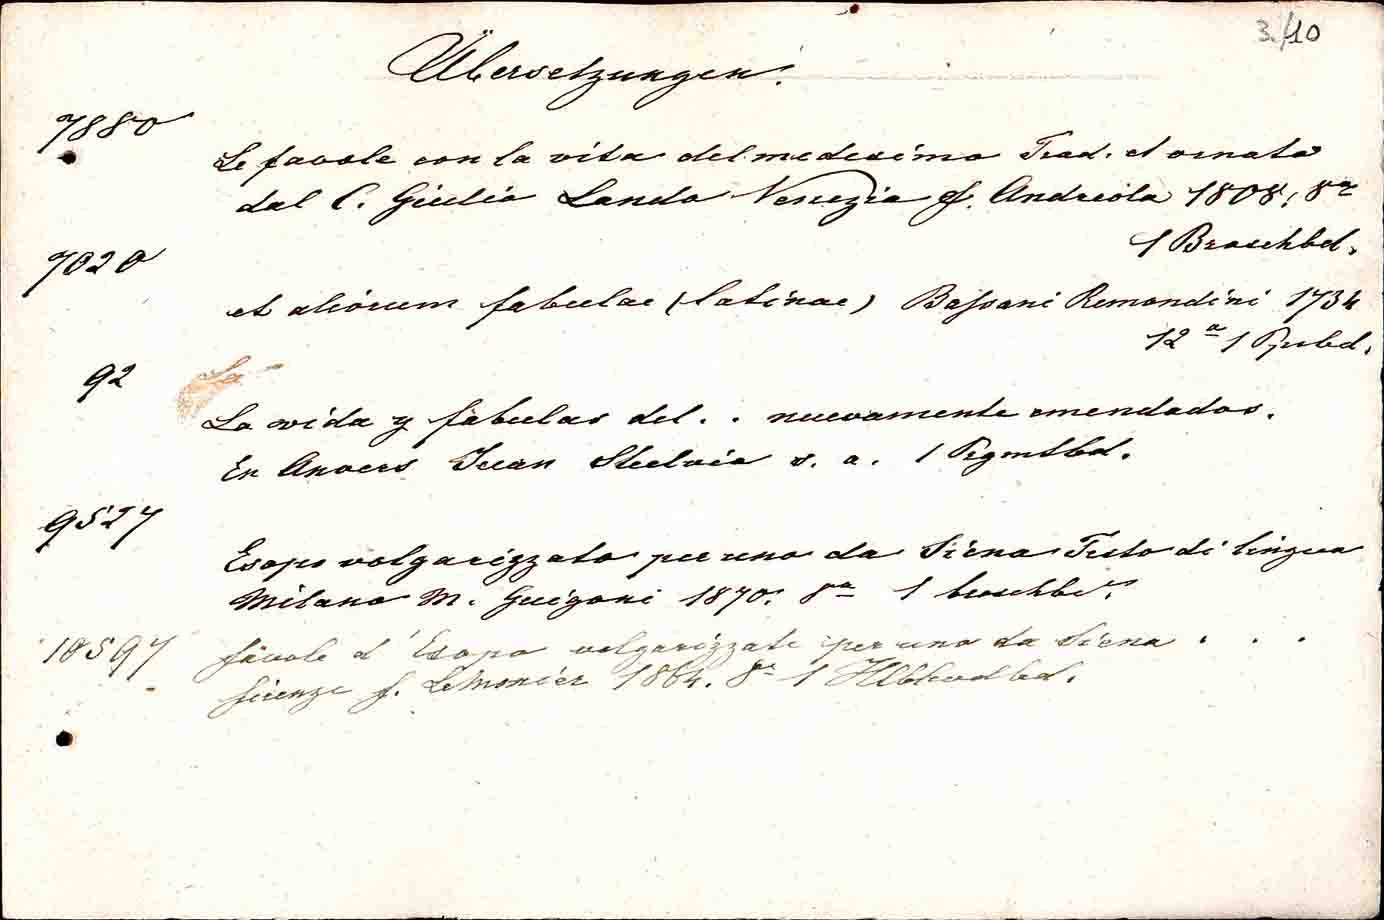 3./10
Übersetzungen:
7880
Le favole con la vita del medesimo Trad. et ornata
dal C. Giulio Lando Venezia f. Andreola 1808, 8º
1 Broschbd.
7020
et aliorum fabulae (latinae) Bassani Remondini 1734
12º 1
92
La
La vida y fabulas del . . nuevamente emendados.
En Anvers Juan Steelsio s. a. 1 Prgmtbd.
9527
Esopo volgarizzato per uno da Siena Testo di lingua
Milano M. Guigoni 1870. 8º 1 broschbd.
18597
favole d'Esopo volgarizzate per uno da Siena . . .
firenze f. LeMonier 1864. 8º 1 Hlblwdbd.